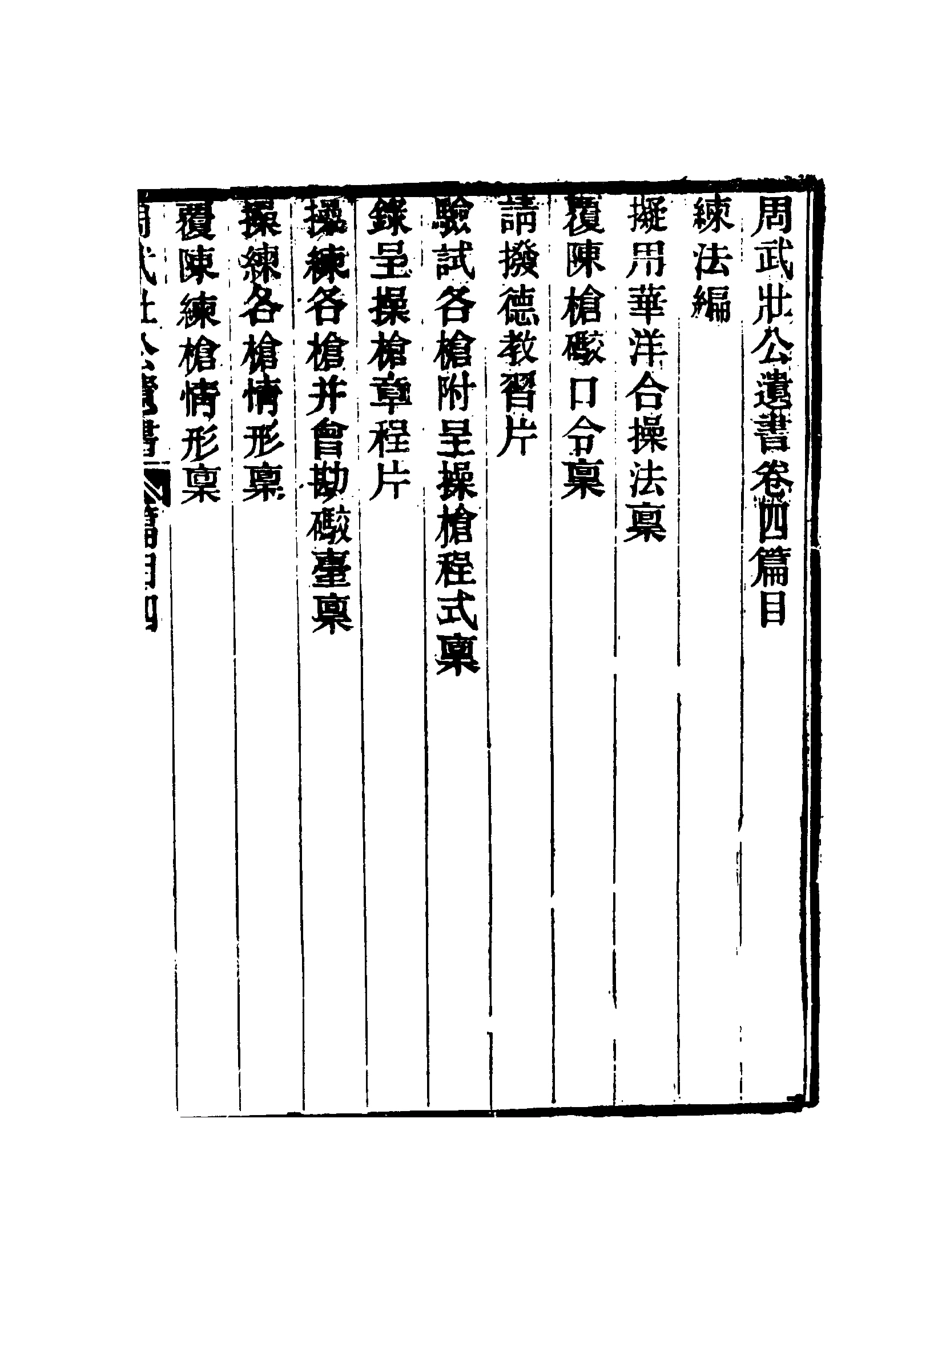 周武壯公遺書卷四篇目
練法編
擬用華洋合操法稟
覆陳槍礮口令稟
請撥德教習片
驗試各槍附呈操槍程式稟
錄呈操槍章程片
操練各槍并會勘礮臺稟
操練各槍情形稟
覆陳練槍情形稟
周武壯公遺書 篇目四